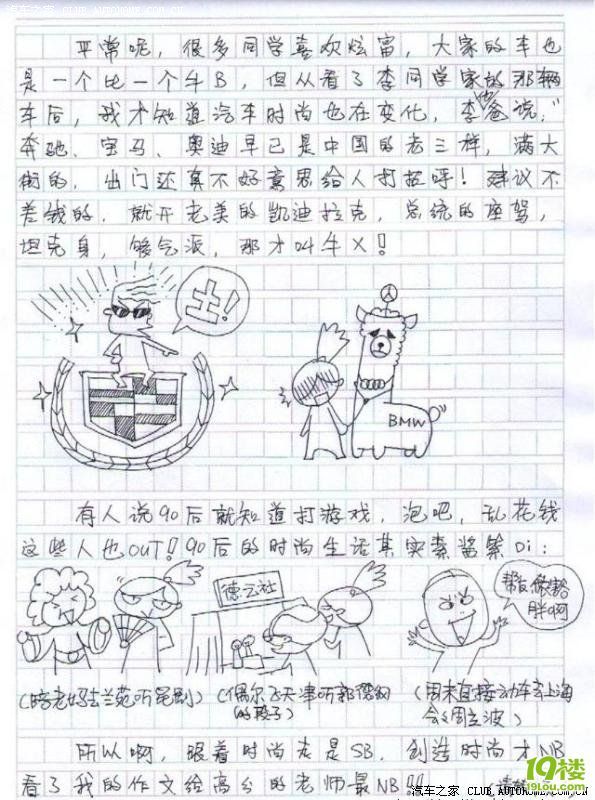 汽车之家 CLUB.AUTOHOME.COM.CN
平常呢，很多同学喜欢炫富，大家的车也
是一个比一个牛B，但从看了李同学家的那辆
车后，我才知道汽车时尚也在变化，李他爸说，"
奔驰、宝马、奥迪早已是中国的老三样，满大
街的，出门还真不好意思给人打招呼！建议不
差钱的，就开老美的凯迪拉克，总统的座驾，
坦克身，够气派，那才叫牛X！
土！
BMW
有人说90后就知道打游戏，泡吧，乱花钱
这些人也OUT！90后的时尚生活其实素酱紫Di：
德云社
胖啊
(陪老妈去兰苑听昆剧)
(偶尔飞天津听郭德纲
的段子)
(周末直接动车去上海
会会周立波)
所以啊，跟着时尚走是SB，创造时尚才NB
看了我的作文给高分的老师最NB!!!
19楼
19lou.com
汽车之家 CLUB.AUTOHOME.COM.CN